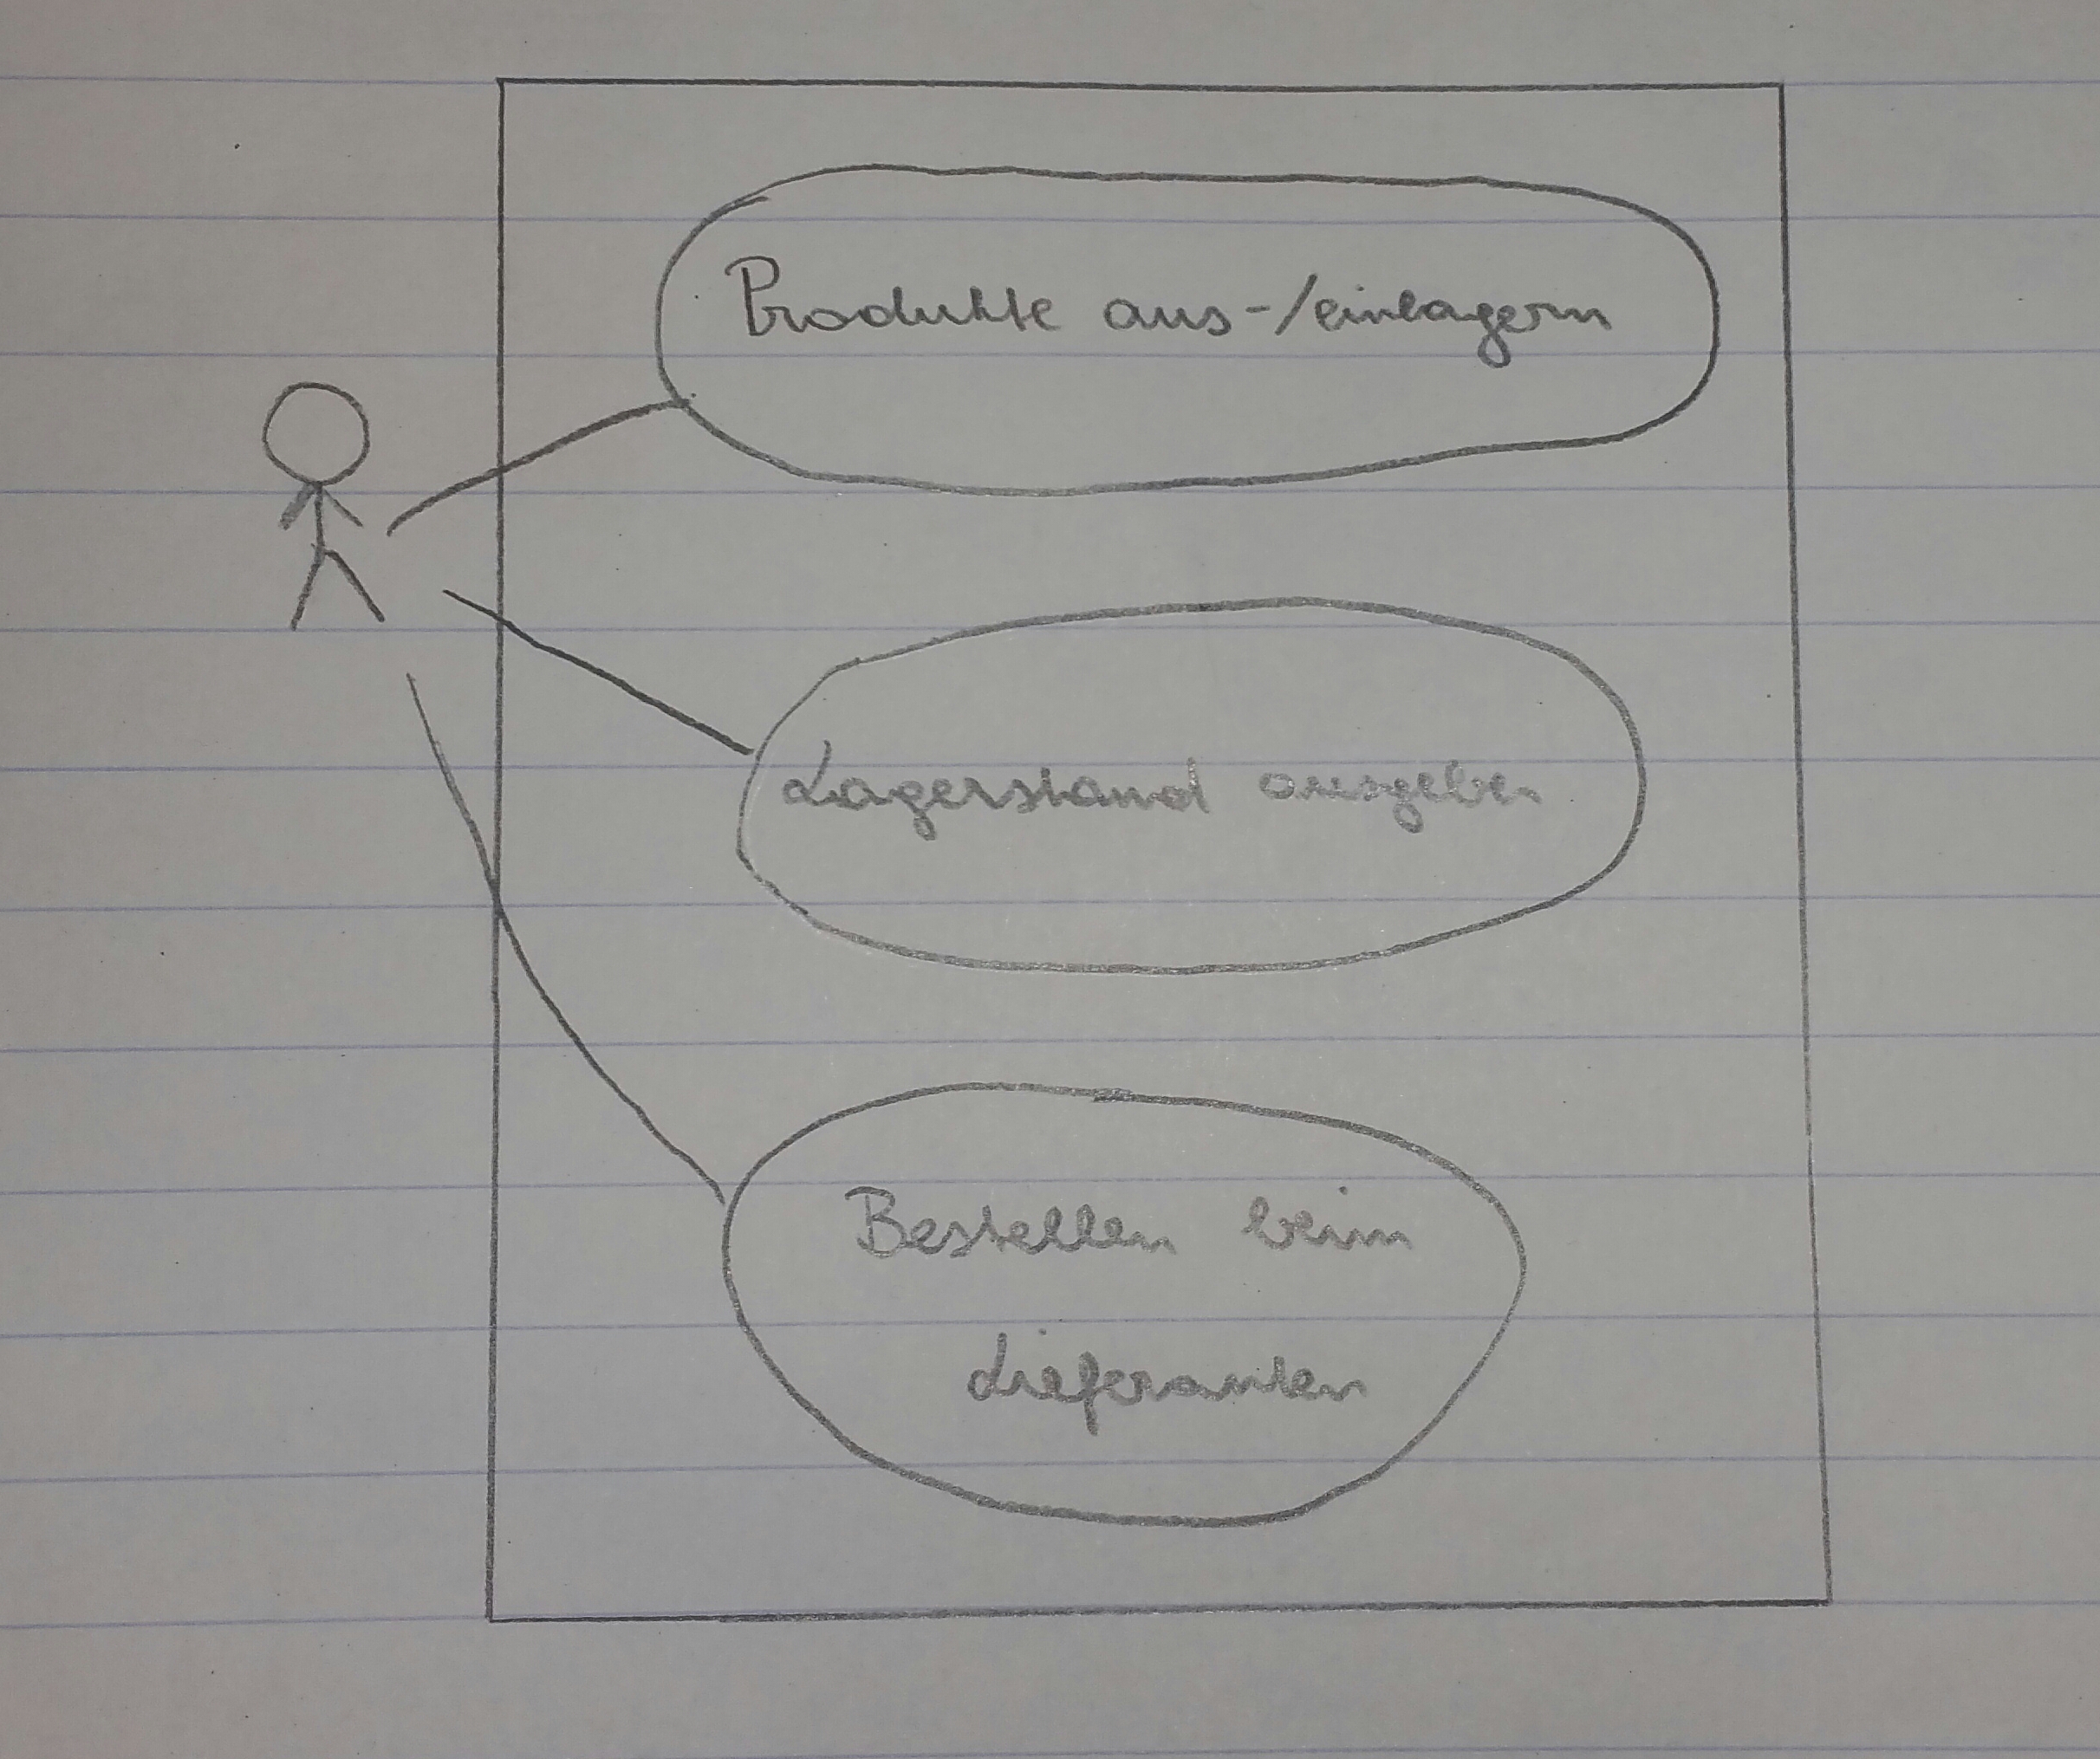 Produkte aus-/einlagern
Lagerstand ausgeben
Bestellen beim
Lieferanten